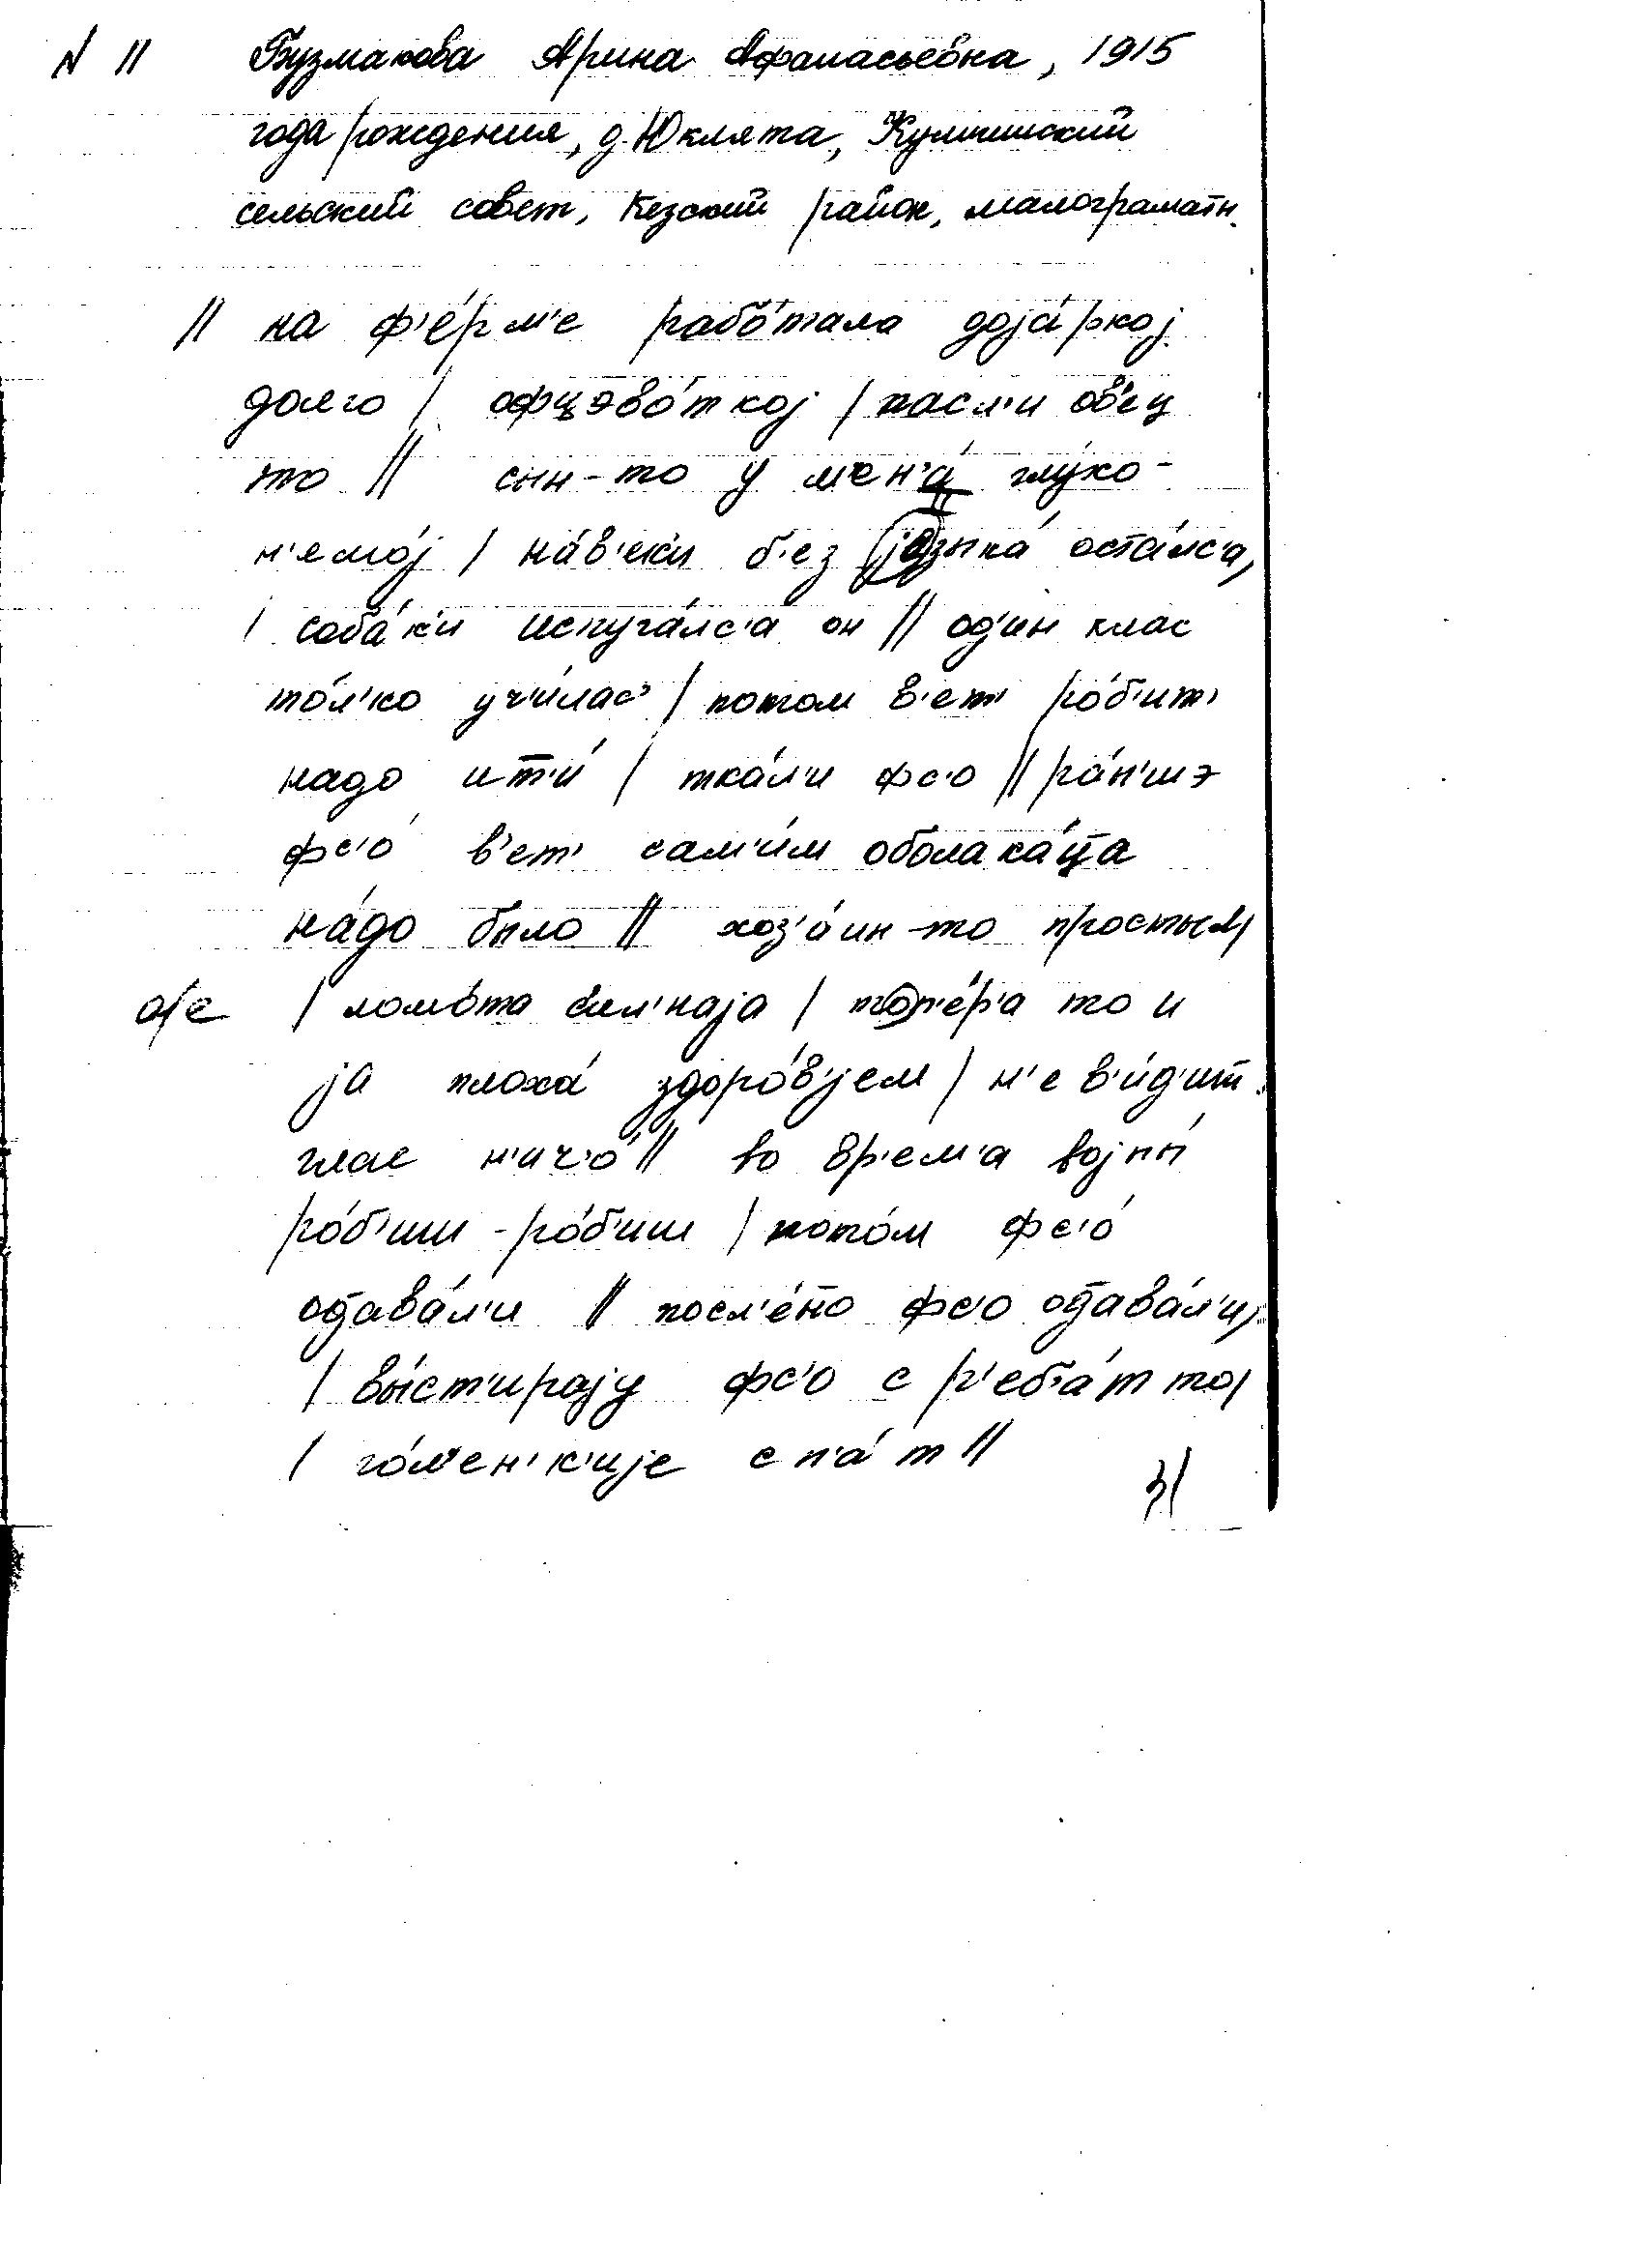 N 11 Бузмакова Арина Афанасьевна, 1915
года рождения, д. Юклята,
сельский совет, Кезский район, малограматн.
// на ф'е́рм'е рабо́тала доjа́ркоj
долго / офцэво́ткоj / пасл'и ов'ец
то // сын-то у м'ен'а́ глухо-
н'емо́j / на́в'ек'и б'ез jазыка́ оста́лс'а,
/ соба́к'и испуга́лс'а он // од'ин клас
то́л'ко уч'и́лас' / потом в'ет' ро́б'ит'
надо ит̄'и́ / тка́л'и фс'о // ра́н'шэ
фс'о́ в'ет' сам'и́м оболака́ц̄а
на́до было // хоз'а́ин-то простыл/
о/е / ломо́та сил'наjа / топ'е́р'а то и
jа плоха́ здоро́в'jем / н'е в'и́д'ит
глас н'ич'о́ // во вр'ем'а воjны́
ро́б'иш - ро́б'иш / пото́м фс'о́
од̄ава́л'и // посл'е́н̄о фс'о од̄ава́л'и,
/ вы́ст'ираjу фс'о с р'еб'а́т то/
/ го́л'ен'к'иjе с п'а́т //
31